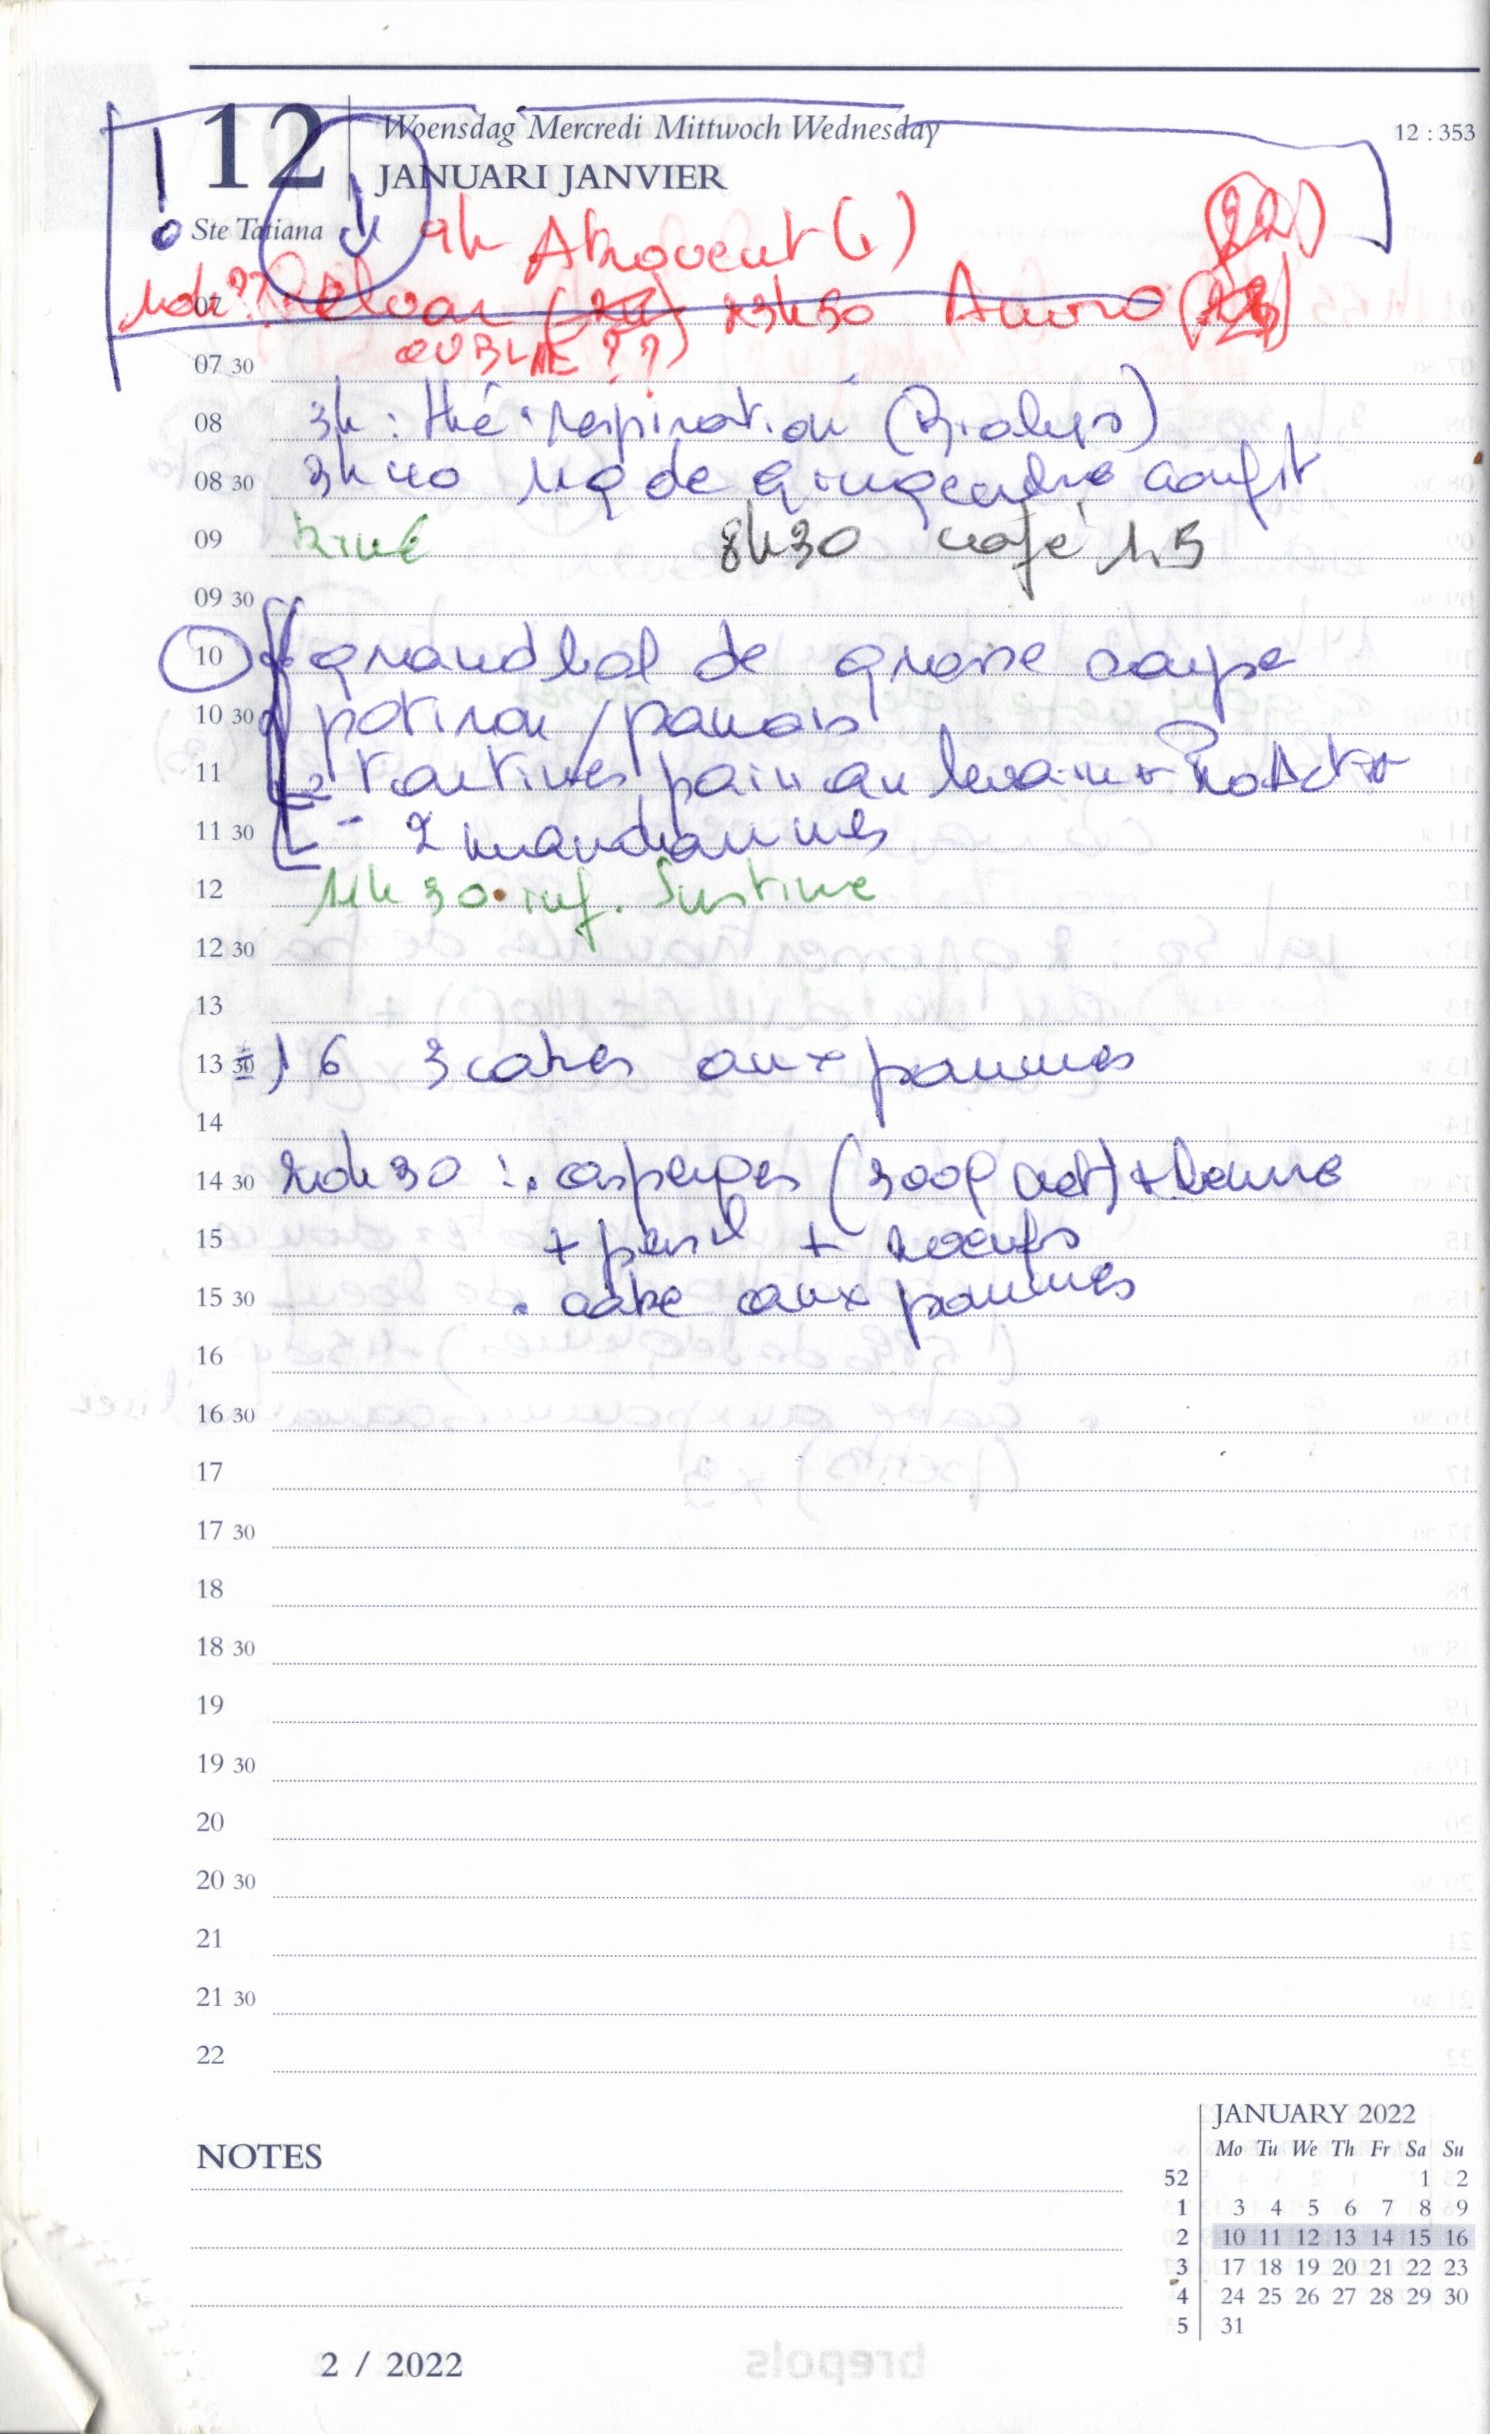 12 Woensdag Mercredi Mittwoch Wednesday 12 : 353
JANUARI JANVIER
! Ste Tatiana 9h Atrovent (1) (22)
07 Relvar 23h30 Auro
OUBLIÉ ??
07 30
08 3h : thé "respiration" (Biolys)
08 30 3h40 11g de gingembre confit
09 8h30 café 1,5
09 30
10 grand bol de grosse soupe
10 30 potiron / panais
11 2 tartines pain au levain + ProActiv
11 30 - 2 mandarines
12 11h30 • inf.
12 30
13
13 30 16 3 cakes aux pommes
14
14 30 20h30 : . asperges (300g net) + beurre
15 + persil + 2 oeufs
15 30 . cake aux pommes
16
16 30
17
17 30
18
18 30
19
19 30
20
20 30
21
21 30
22
NOTES
JANUARY 2022
Mo Tu We Th Fr Sa Su
52 1 2
1 3 4 5 6 7 8 9
2 10 11 12 13 14 15 16
3 17 18 19 20 21 22 23
4 24 25 26 27 28 29 30
5 31
2 / 2022
brepols